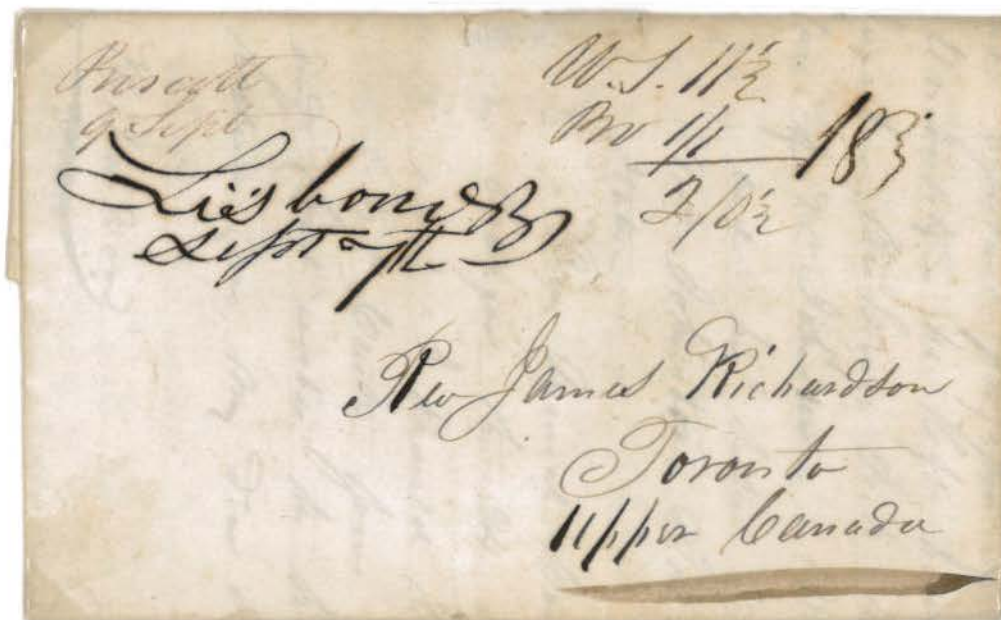 Prescott
9 Sept
Lisbon NY
Sept 7th
U.S. 11½
Br 1/1
2/0½
18¾
Rev James Richardson
Toronto
Upper Canada